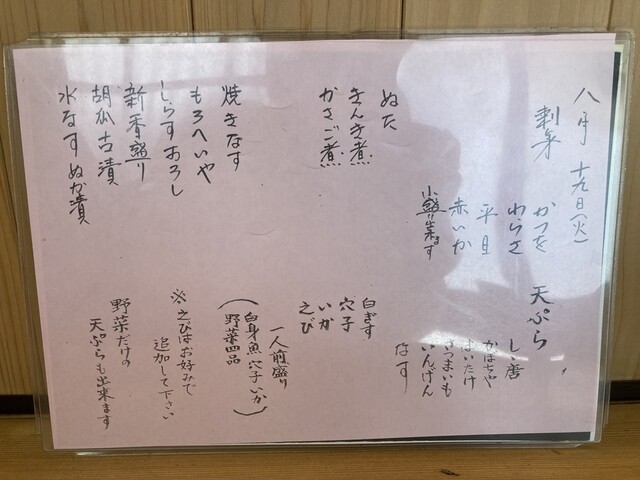 八月十九日(火)
刺身
かつを
わらさ
平目
赤いか
小鰺酢〆
ぬた
きんき煮
かさご煮
焼きなす
もろへいや
しらすおろし
新香盛り
胡瓜古漬
水なすぬか漬
天ぷら
しし唐
かぼちゃ
まいたけ
さつまいも
いんげん
なす
白ぎす
穴子
いか
えび
一人前盛り
(白身魚穴子いか
野菜四品)
※えびはお好みで
追加して下さい
野菜だけの
天ぷらも出来ます